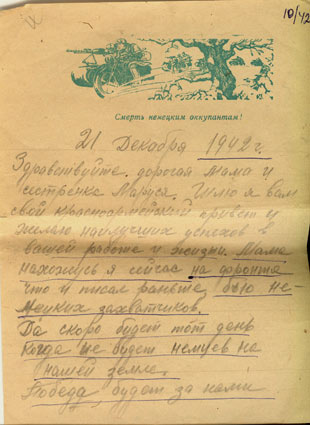 10/42
Смерть немецким оккупантам!
21 Декабря 1942 г.
Здравствуйте дорогая мама и
сестренка Маруся. Шлю я вам
свой красноармейский привет и
желаю наилучших успехов в
вашей работе и жизни. Мама
нахожусь я сейчас на фронте
что и писал раньше, бью не-
мецких захватчиков.
Да скоро будет тот день
когда не будет немцев на
нашей земле.
Победа, будет за нами